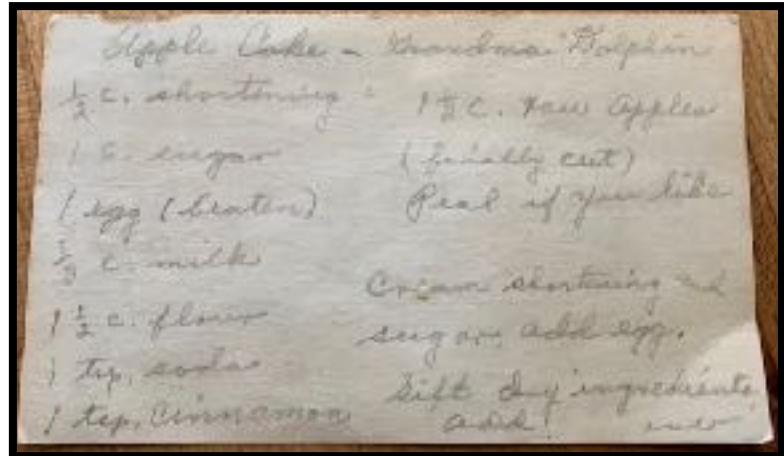 Apple Cake - Grandma Dolphin
1/2 c. shortening
1 c. sugar
1 egg (beaten)
1/2 c. milk
1 1/2 c. flour
1 tsp, soda
1 tsp, Cinnamon
1 1/2 c. Raw Apples
(finally cut)
Peal if you like
Cream shortening and
sugar, add egg.
Sift dry ingredients,
add